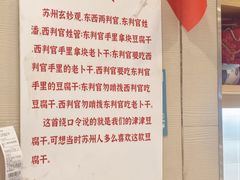 苏州玄妙观,东西两判官,东判官姓
潘,西判官姓管;东判官手里拿块豆腐干,
西判官手里拿块老卜干;东判官要吃西
判官手里的老卜干,西判官要吃东判官
手里的豆腐干;东判官勿啃找西判官吃
豆腐干,西判官勿啃找东判官吃老卜干。
这首绕口令说的就是我们的津津豆
腐干,可想当时苏州人多么喜欢这款豆
腐干。